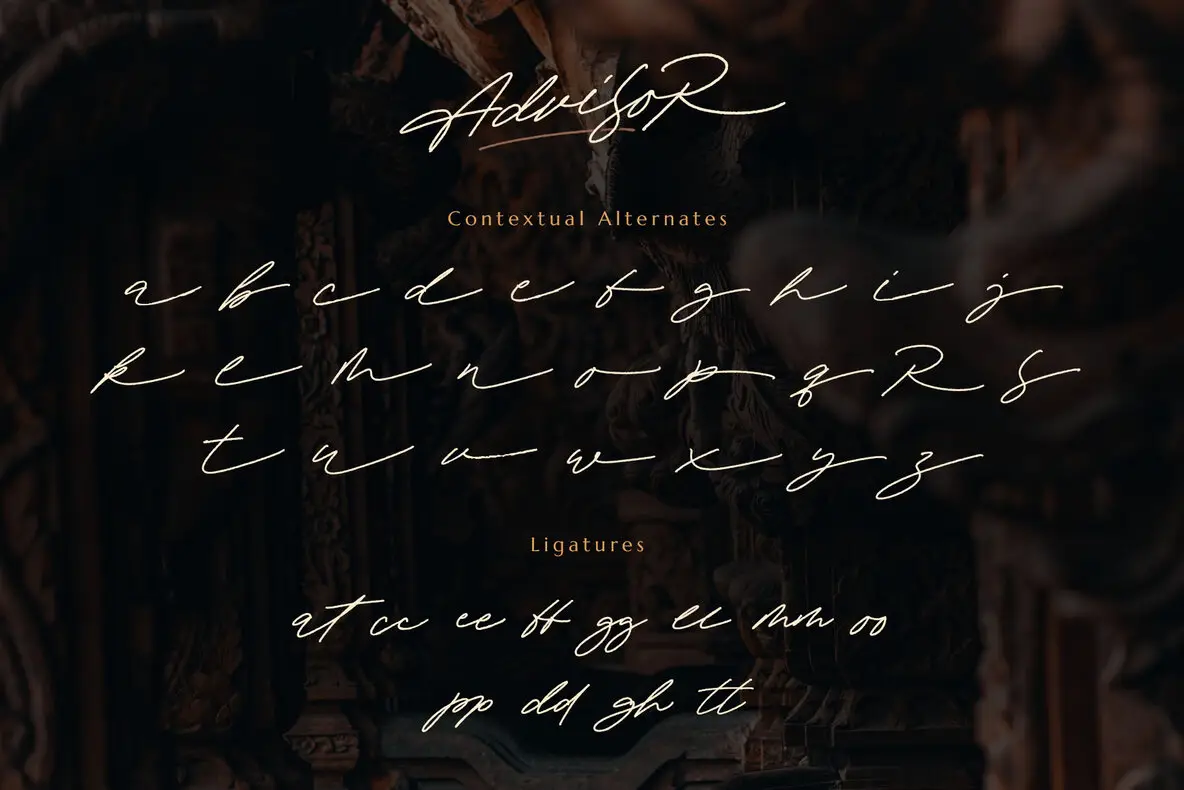 AdvisoR
Contextual Alternates
a b c d e f g h i j
k l m n o p q R S
t u v w x y z
Ligatures
at cc ee ff gg ll mm oo
pp dd gh tt